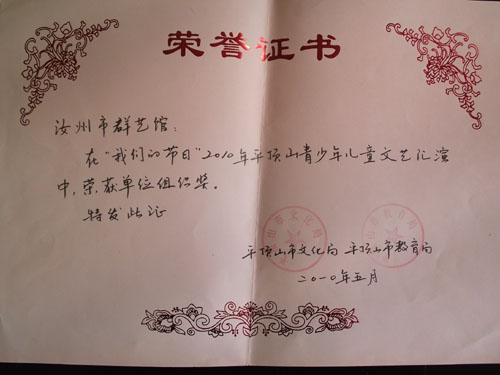 荣誉证书
汝州市群艺馆：
在"我们的节日"2010年平顶山青少年儿童文艺汇演
中，荣获单位组织奖。
特发此证
平顶山市文化局 平顶山市教育局
二〇一〇年五月